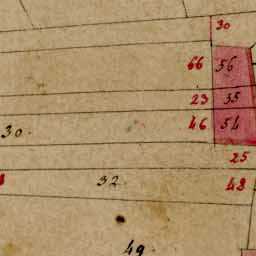 30
66 56
23 35
46 54
30.
25
32. 48
49